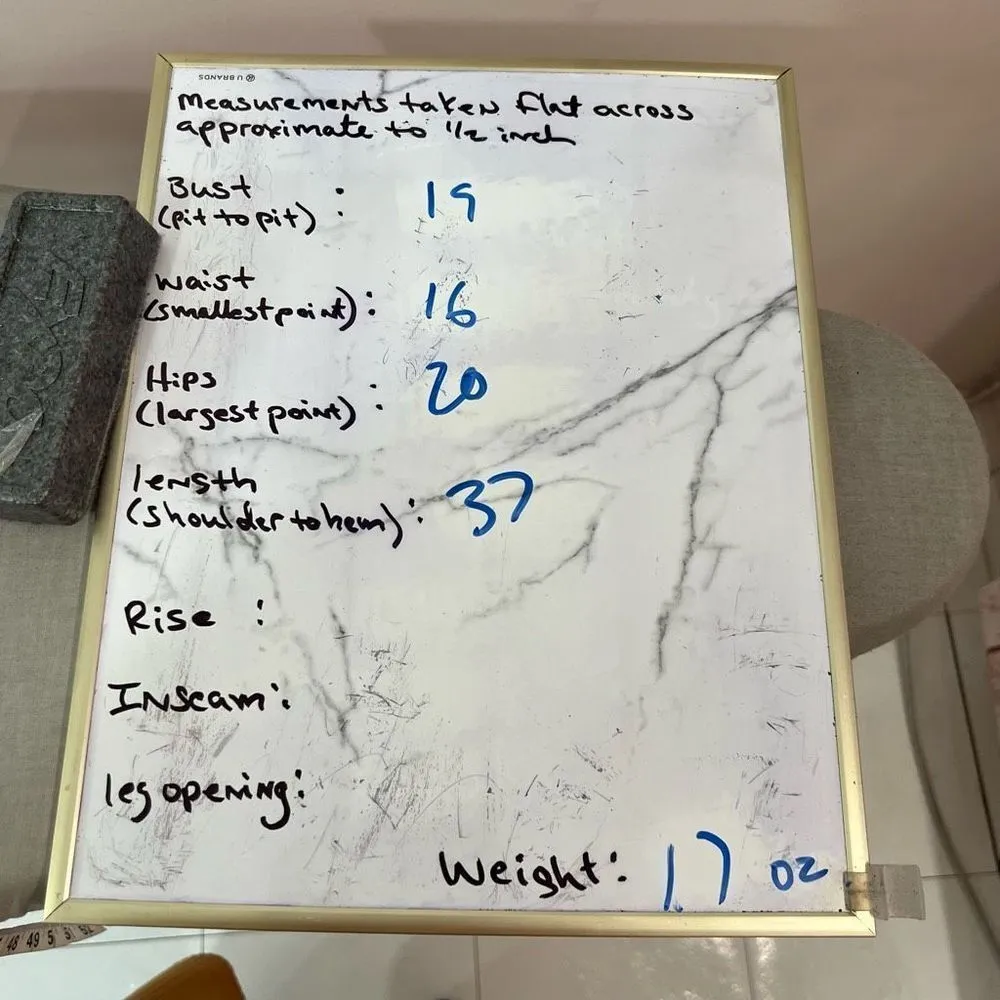 U BRANDS
Measurements taken flat across
approximate to 1/2 inch
Bust : 19
(pit to pit)
Waist
(smallest point) : 16
Hips : 20
(largest point)
length
(shoulder to hem) : 37
Rise :
Inseam :
leg opening :
Weight : 17 oz
48 49 5 51 52